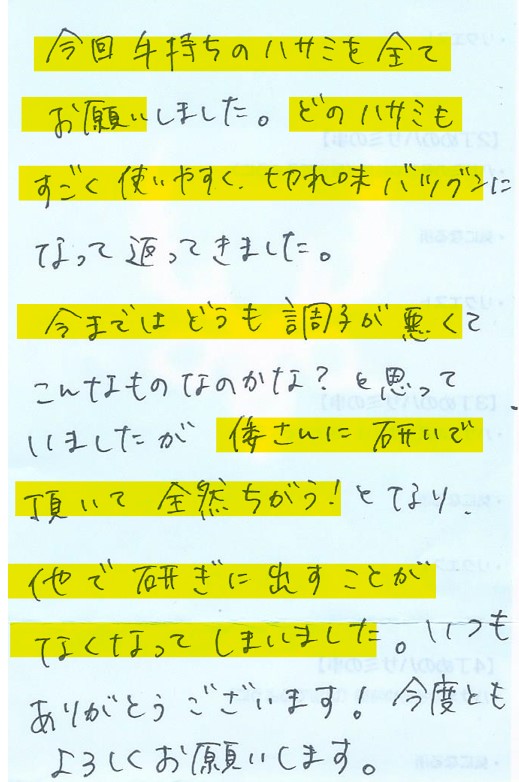 今回手持ちのハサミを全て
お願いしました。どのハサミも
すごく使いやすく、切れ味バツグンに
なって返ってきました。
今まではどうも調子が悪くて
こんなものなのかな?と思って
いましたが倭さんに研いで
頂いて全然ちがう!となり、
他で研ぎに出すことが
なくなってしまいました。いつも
ありがとうございます!今度とも
よろしくお願いします。